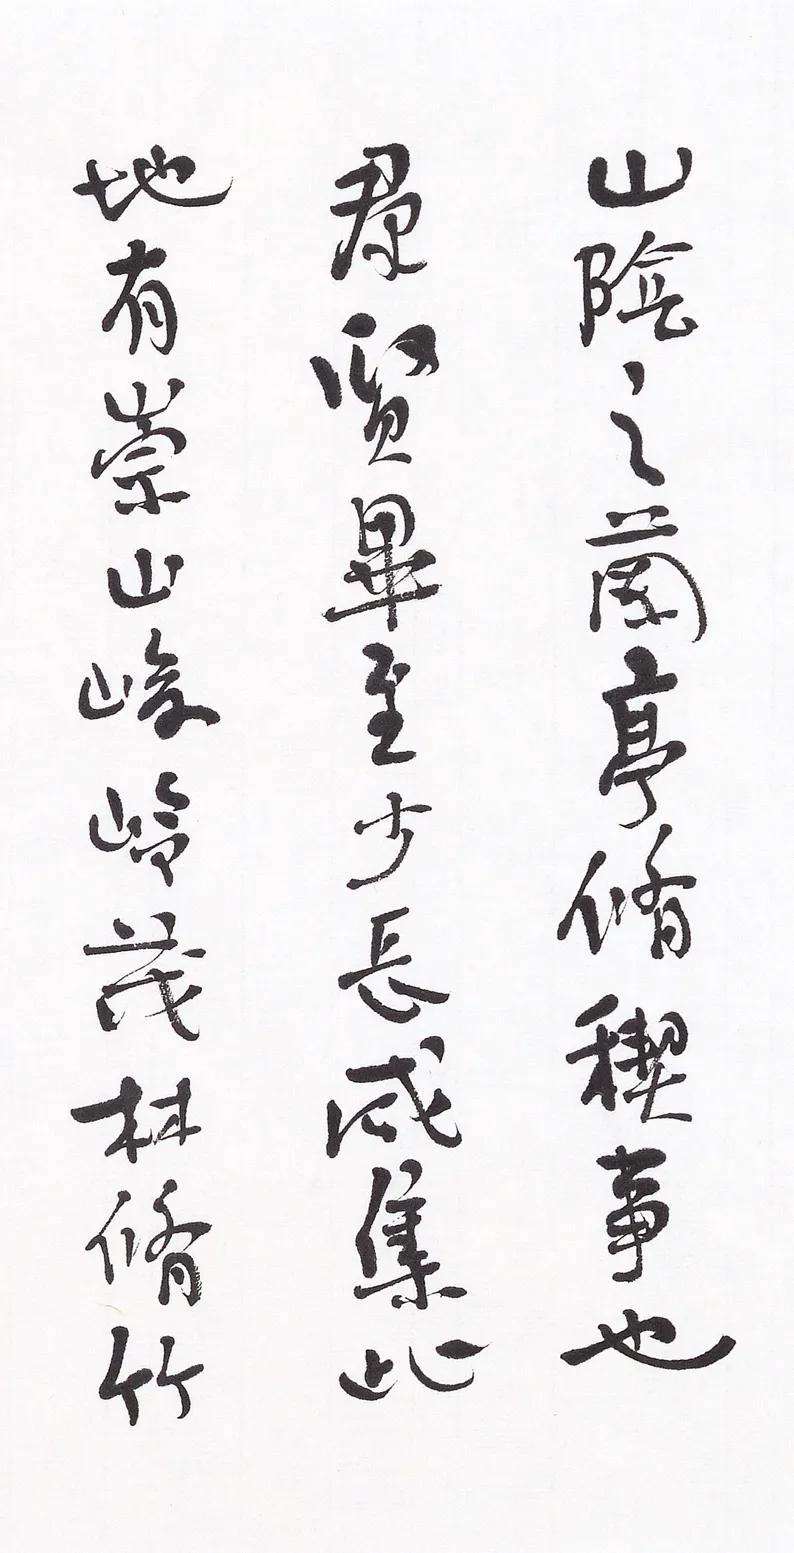 山陰之蘭亭脩稧事也
羣賢畢至少長咸集此
地有崇山峻嶺茂林脩竹